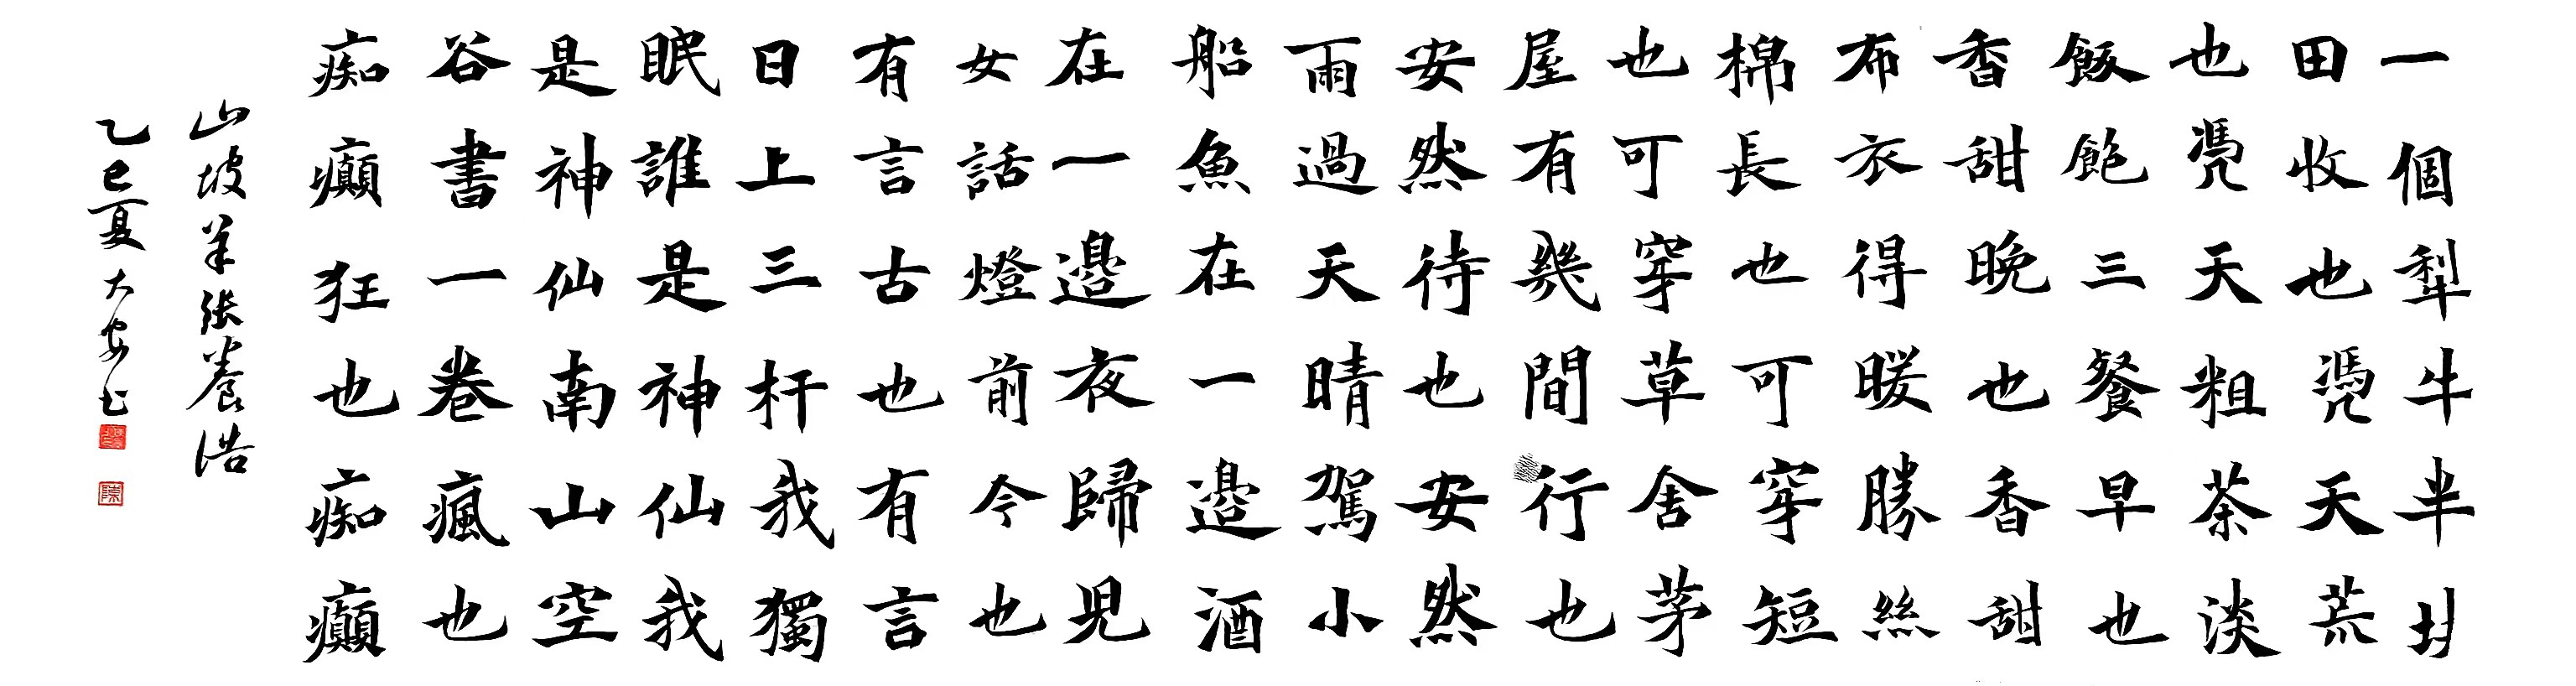 一個犁牛半
田收也凴天荒
也凴天粗茶淡
飯飽三餐早也
香甜晚也香甜
布衣得暖勝絲
棉長也可穿短
也可穿草舍茅
屋有幾間行也
安然待也安然
雨過天晴駕小
船魚在一邊酒
在一邊夜歸兒
女話燈前今也
有言古也有言
日上三杆我獨
眠誰是神仙我
是神仙南山空
谷書一卷瘋也
痴癲狂也痴癲
山坡羊張養浩
乙巳夏大安書
陳